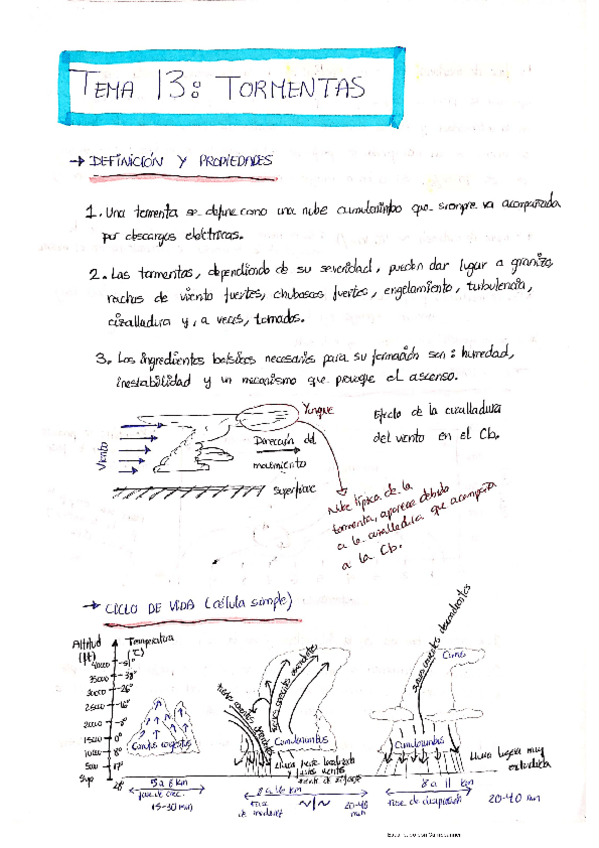 TEMA 13: TORMENTAS
→ DEFINICIÓN Y PROPIEDADES
1. Una tormenta se define como una nube cumulonimbo que siempre va acompañada
por descargas eléctricas.
2. Las tormentas, dependiendo de su severidad, pueden dar lugar a granizo,
rachas de viento fuertes, chubascos fuertes, engelamiento, turbulencia,
cizalladura y, a veces, tornados.
3. Los ingredientes básicos necesarios para su formación son: humedad,
inestabilidad y un mecanismo que provoque el ascenso.
Yunque
Viento
Dirección del
movimiento
Superficie
Efecto de la cizalladura
del viento en el Cb.
Nube típica de la
tormenta, aparece debido
a la cizalladura que acompaña
a la Cb.
→ CICLO DE VIDA (célula simple)
Altitud
(ft)
Temperatura
(°C)
40000 -51°
35000 -38°
30000 -26°
25000 -16°
20000 -8°
15000 0°
10000 8°
5000 17°
Sup 28°
Cumulus congestus
5 a 8 km
fase de crec.
15-30 min
Cumulonimbus
Lluvia fuerte localizada
8 a 16 km
fase
de madurez
20-40
min
corrientes descendentes
Cirrus
Cumulonimbus
Lluvia ligera muy
8 a 11 km
fase de disipación
20-40 min